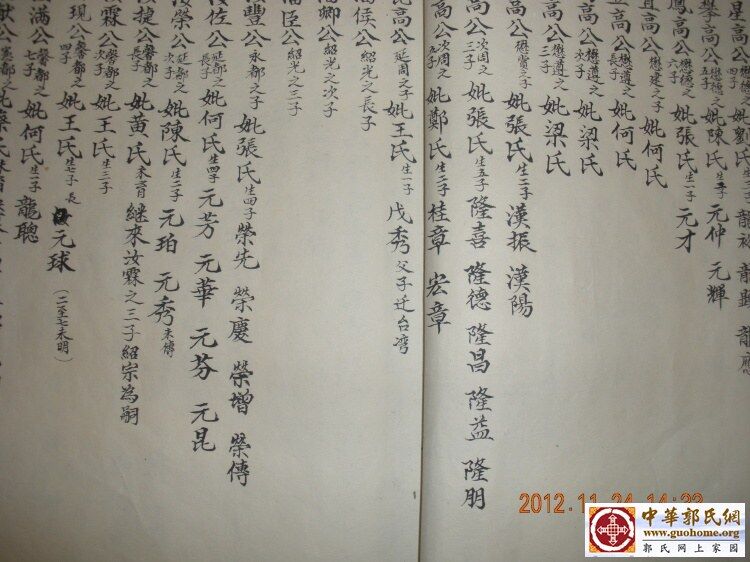 星公 懋德之四子 妣劉氏 生三子 龍
攀高公 懋德之五子 妣陳氏 元仲 元輝
鳳高公 六子 妣張氏 生一子 元才
高公 懋建之子 妣何氏
高公 懋道之長子 妣何氏
高公 懋道之次子 妣梁氏
高公 懋道之三子 妣梁氏
高公 懋賞之子 妣張氏 生二子 漢振 漢陽
高公 次周之三子 妣張氏 生五子 隆喜 隆德 隆昌 隆益 隆朋
高公 次周之九子 妣鄭氏 生二子 桂章 宏章
高公 延周之子 妣王氏 生一子 戊秀 父子迁台湾
侯公 紹光之長子
卿公 紹光之次子
臣公 紹光之三子
豐公 永都之子 妣張氏 生四子 榮先 榮慶 榮增 榮傳
佐公 延都之長子 妣何氏 生四子 元芳 元華 元芬 元昆
榮公 延都之次子 妣陳氏 生二子 元珀 元秀 未傳
捷公 馨都之長子 妣黃氏 未育 継來汝霖之三子紹宗為嗣
霖公 馨都之次子 妣王氏 生三子
現公 馨都之四子 妣王氏 生七子 長 元球 (二至七未明)
滿公 馨都之七子 妣何氏 生一子 龍聰
公
2012.11.24 14:22
中華郭氏網
www.guohome.org
郭氏网上家园